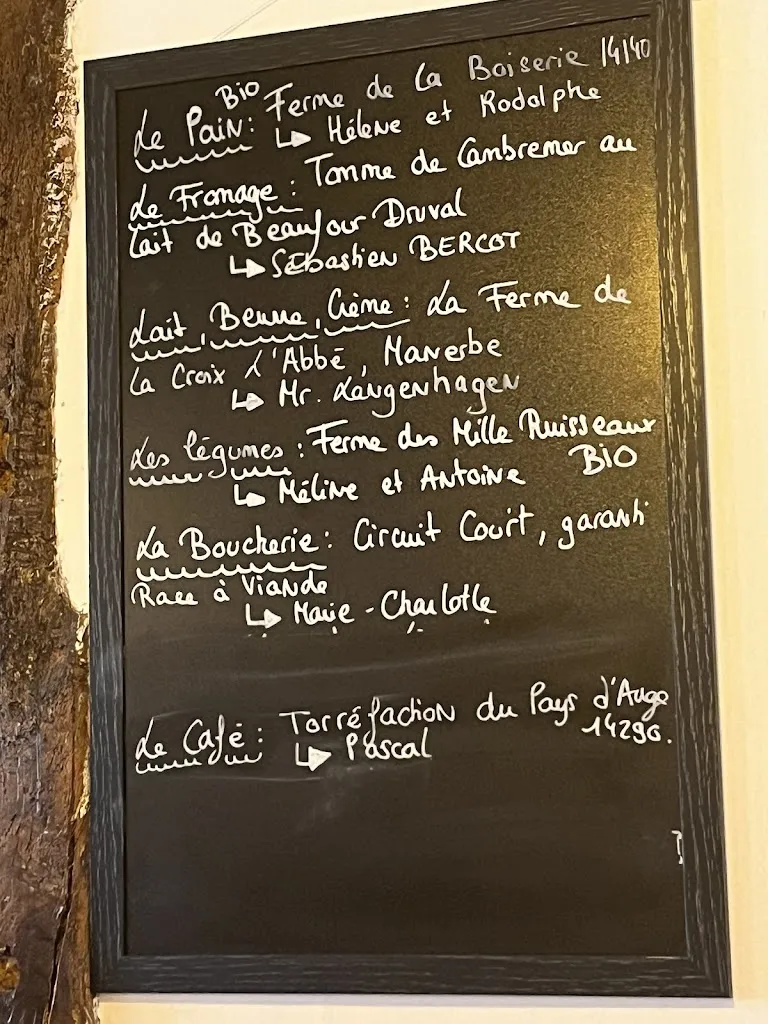 Le Pain Bio : Ferme de la Boiserie 14140
↳ Hélène et Rodolphe
Le Fromage : Tomme de Cambremer au
lait de Beaufour Druval
↳ Sébastien BERCOT
Lait, Beurre, Crème : La Ferme de
la Croix d'Abbé, Manerbe
↳ Mr. Langenhagen
Les légumes : Ferme des Mille Ruisseaux
BIO
↳ Méline et Antoine
La Boucherie : Circuit Court, garanti
Race à Viande
↳ Marie-Charlotte
Le Café : Torréfaction du Pays d'Auge
14290.
↳ Pascal